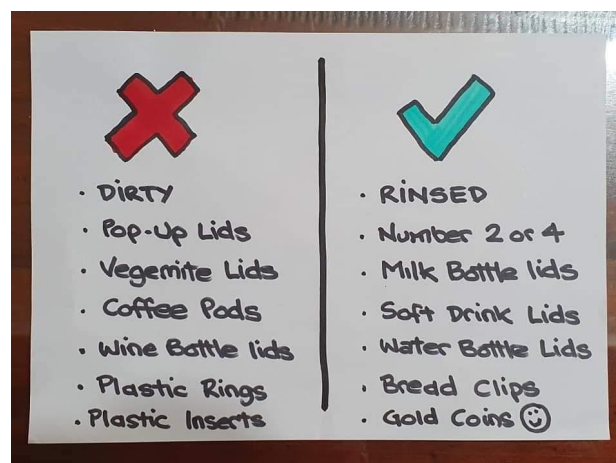 · DiRTY
· Pop-Up Lids
· Vegemite Lids
· Coffee Pods
· Wine Bottle lids
· Plastic Rings
· Plastic Inserts
· RiNSED
· Number 2 or 4
· Milk Bottle lids
· Soft Drink Lids
· Water Bottle Lids
· Bread Clips
· Gold Coins ☺